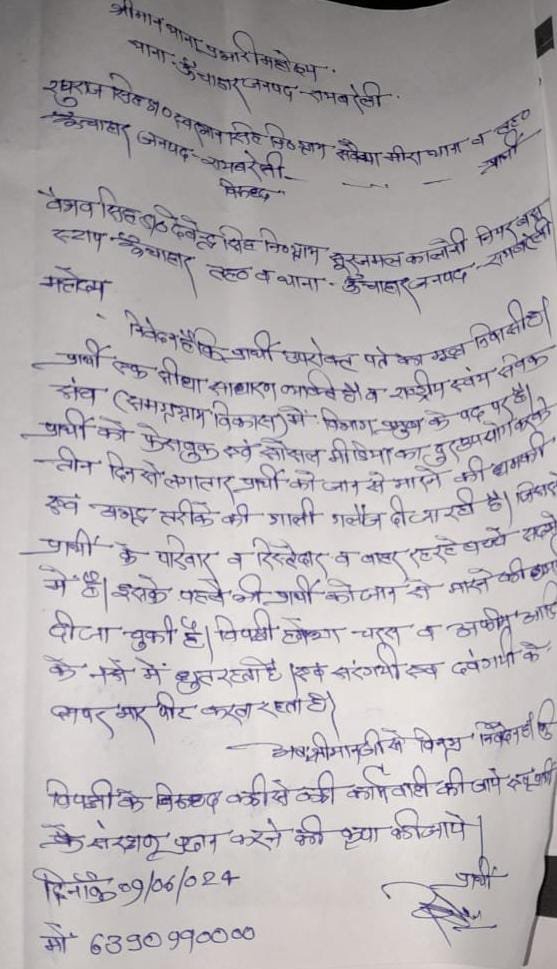 श्रीमान थाना प्रभारी महोदय
थाना- ऊँचाहार जनपद - रायबरेली
रघुराज सिंह पु० स्व० सिंह नि० ग्राम सवैया मीरा थाना व तह०
ऊँचाहार जनपद- रायबरेली. - - - प्रार्थी
विरुद्ध
वैभव सिंह पु० देवेन्द्र सिंह नि० ग्राम सूरजमल कालोनी नियर बस
स्टाप ऊँचाहार तह० व थाना - ऊँचाहार जनपद - रायबरेली
महोदय
निवेदन है कि प्रार्थी उपरोक्त पते का मूल निवासी है।
प्रार्थी एक सीधा साधारण व्यक्ति है व राष्ट्रीय स्वंय सेवक
संघ (समग्र ग्राम विकास) में विभाग प्रमुख के पद पर है।
प्रार्थी को फेसबुक एवं सोसल मीडिया का दुरुपयोग करके
तीन दिन से लगातार प्रार्थी को जान से मारने की धमकी
एवं अभद्र तरीके की गाली गलौज दी जा रही है। जिससे
प्रार्थी के परिवार व रिस्तेदार व बाहर रह रहे बच्चे सदमे
में है। इसके पहले भी प्रार्थी को जान से मारने की धमकी
दी जा चुकी है। विपक्षी हमेशा चरस व अफीम आदि
के नशे में धुत रहता है। एवं सरंगयी एवं दबंगयी के
मार पीट करता रहता है।
अतः श्रीमान जी से विनम्र निवेदन है कि
विपक्षी के विरुद्ध कड़ी से कड़ी कार्यवाही की जाये एवं प्रार्थी
के संरक्षण प्रदान करने की कृपा की जाये।
दिनाँक 09/06/024 प्रार्थी
मो० 6390990000